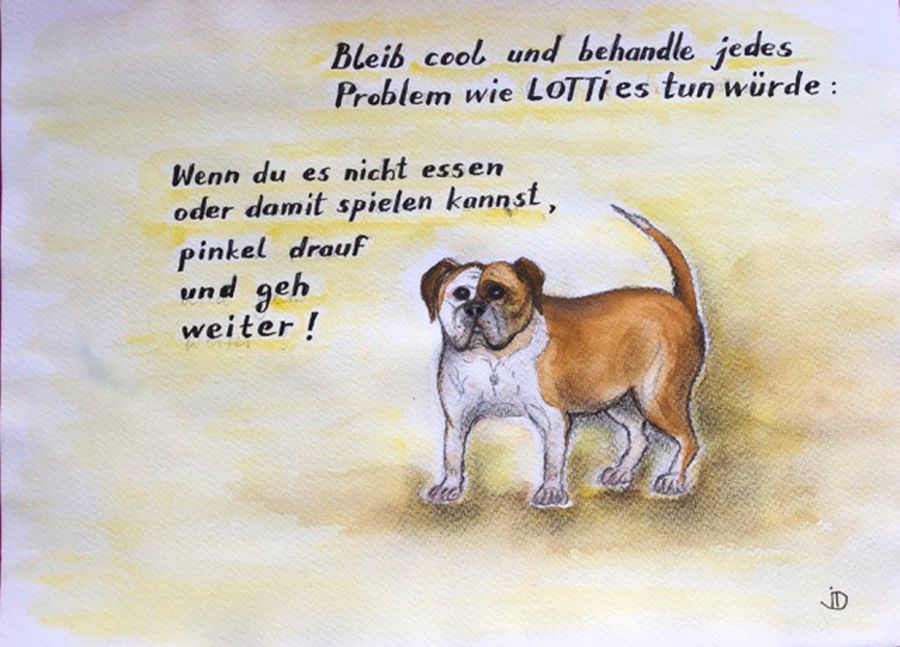 Bleib cool und behandle jedes
Problem wie LOTTi es tun würde :
Wenn du es nicht essen
oder damit spielen kannst,
pinkel drauf
und geh
weiter !
JD